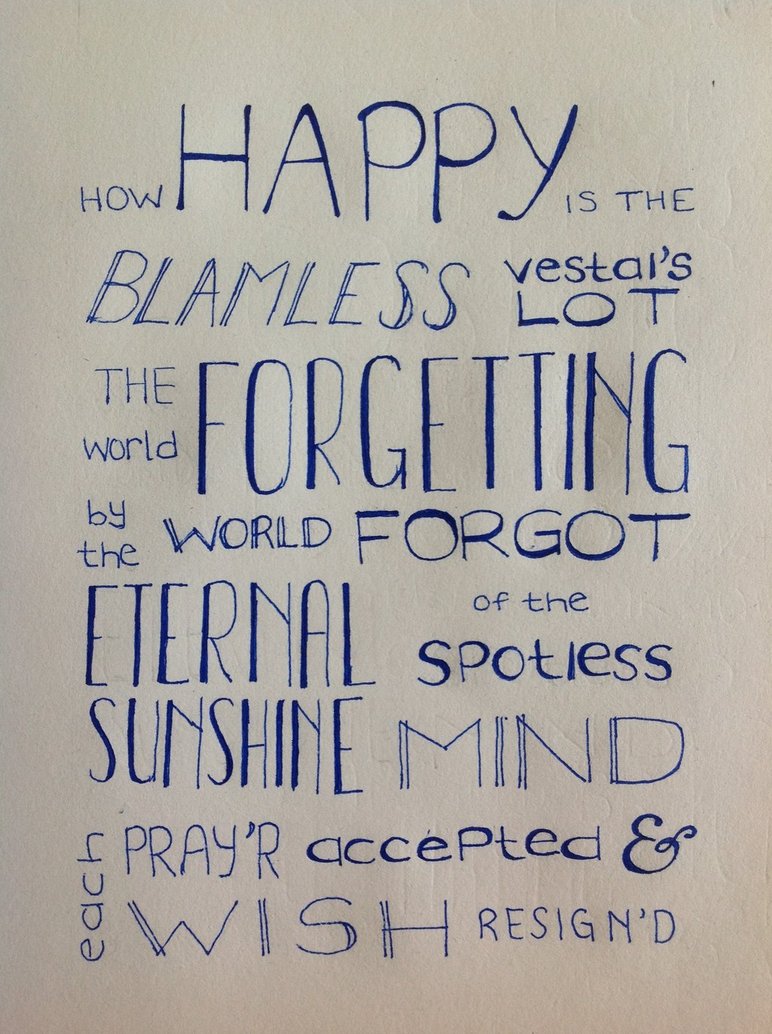 HOW HAPPY IS THE
BLAMLESS vestal's LOT
THE world FORGETTING
by the WORLD FORGOT
ETERNAL SUNSHINE of the spotless MIND
each PRAY'R accepted &
WISH RESIGN'D